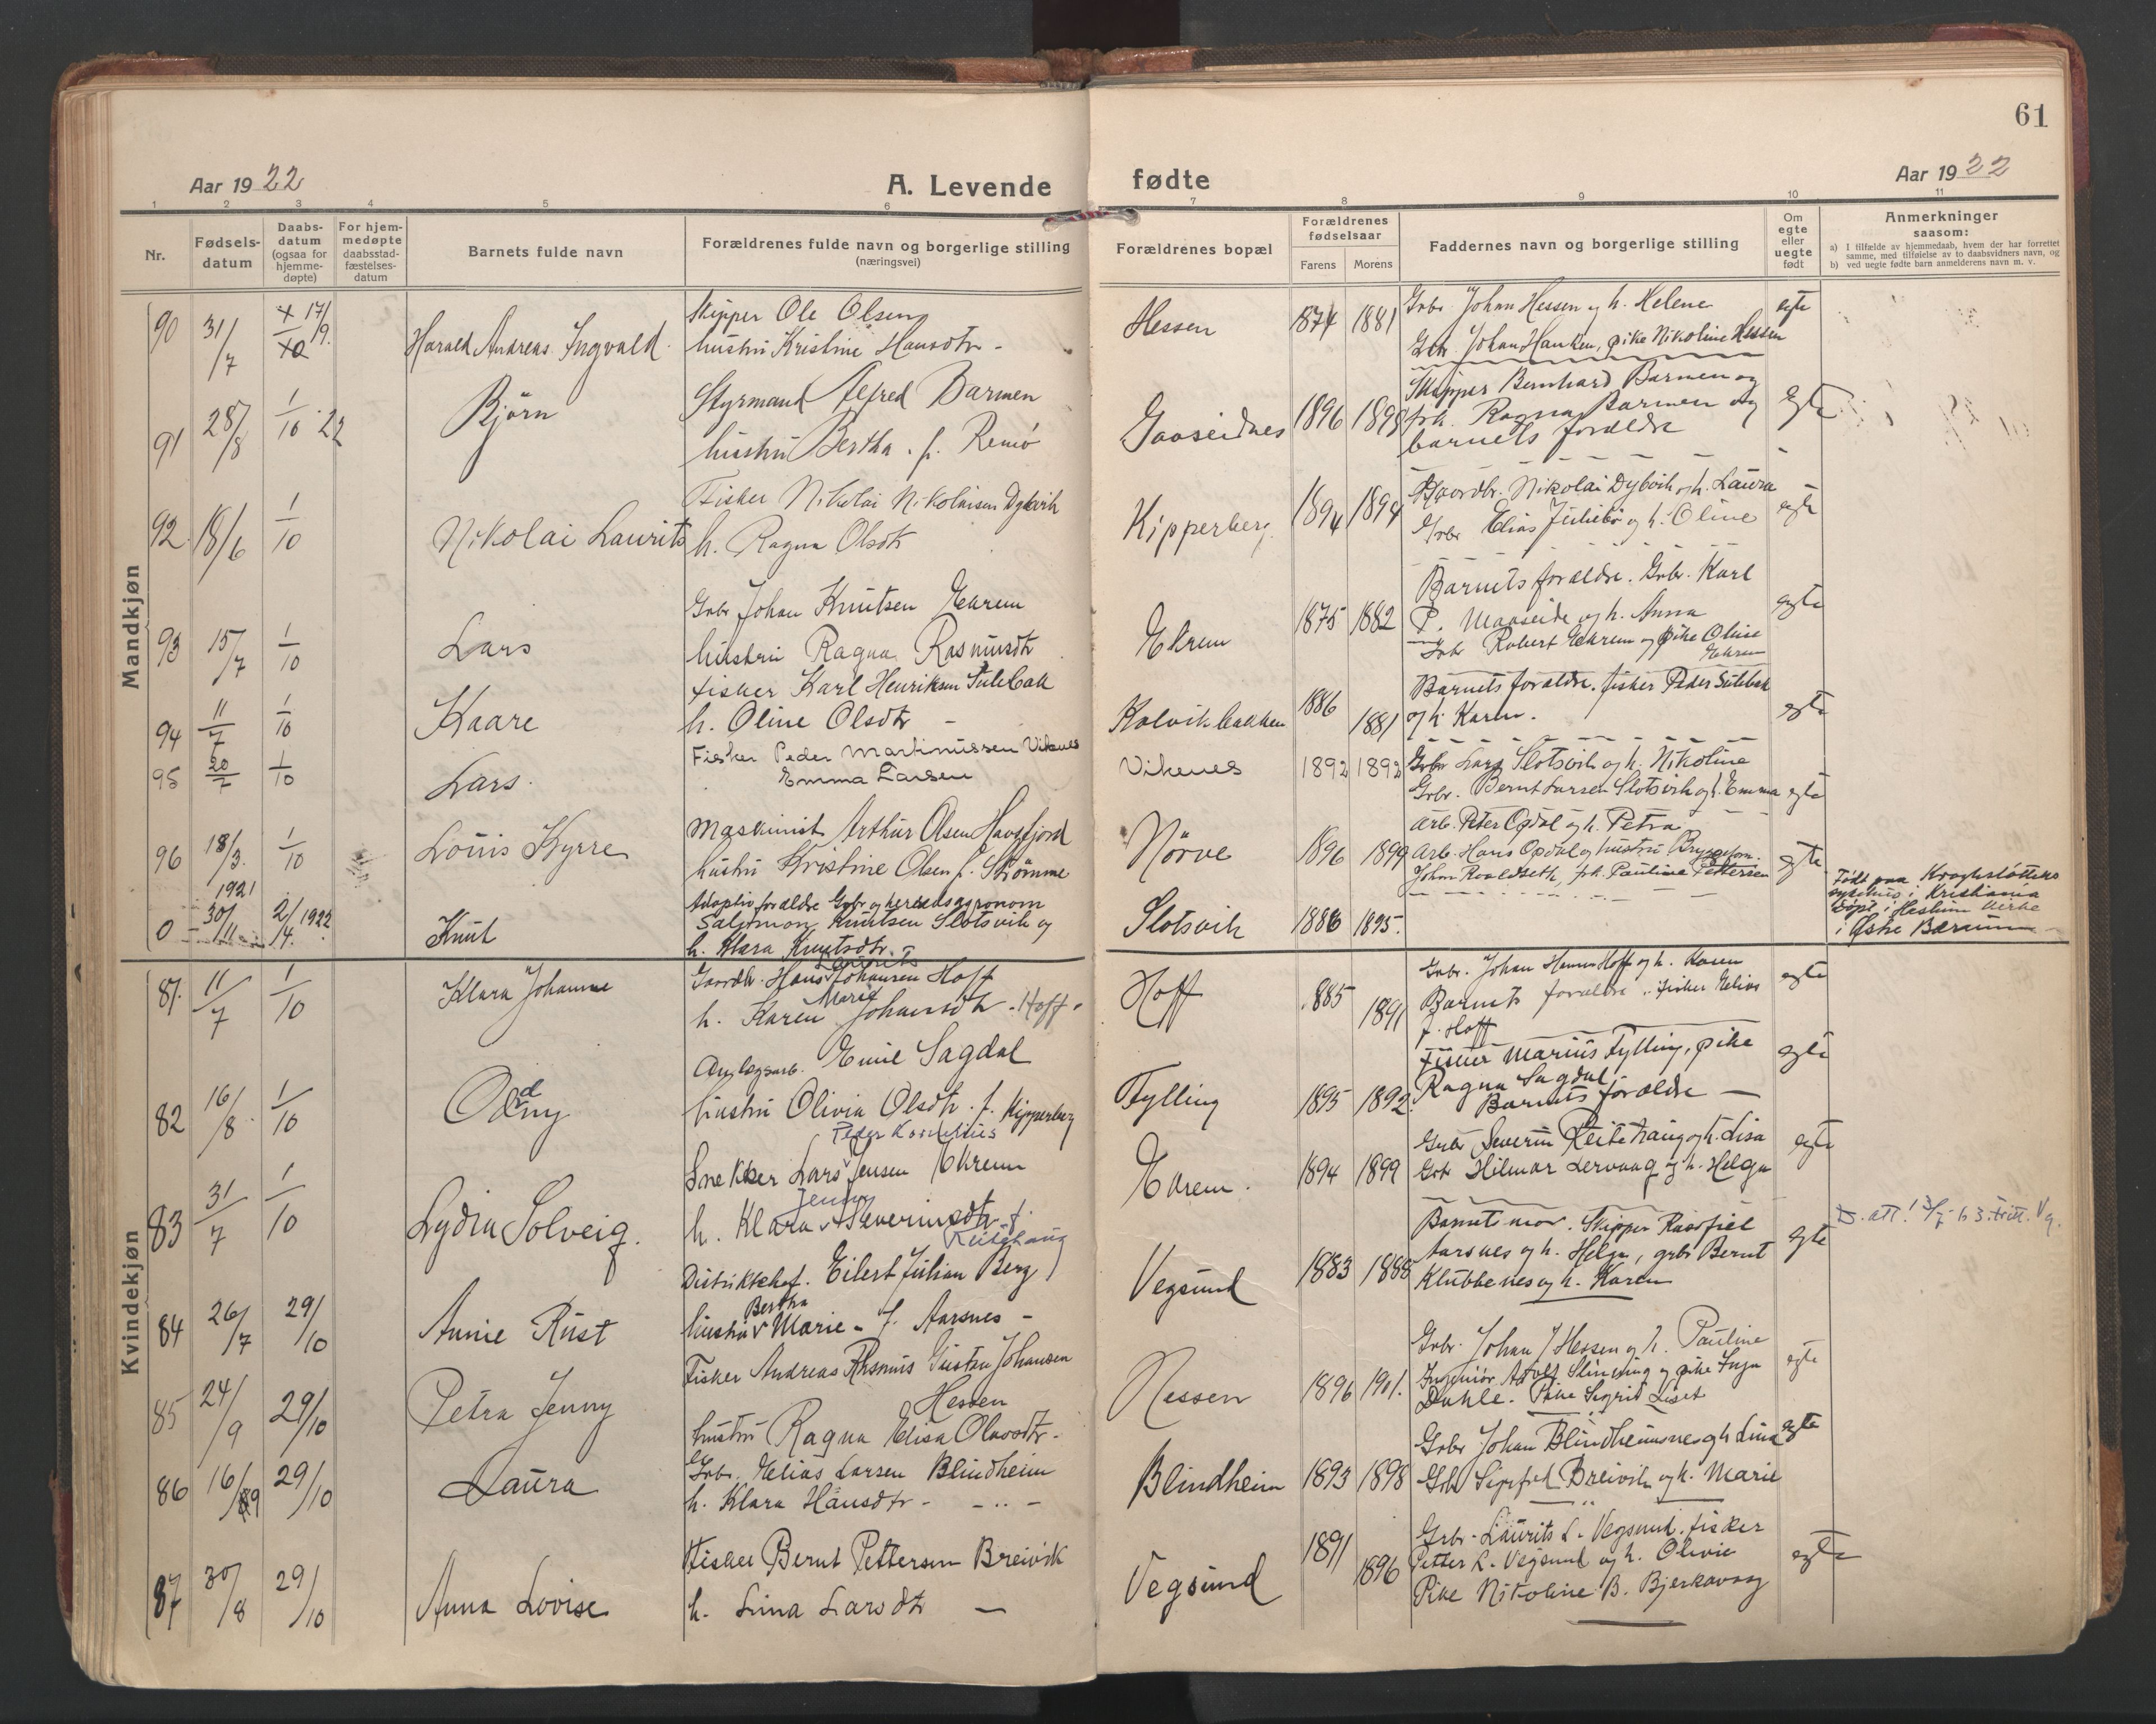 61
Aar 1922
A. Levende
fødte
Aar 1922
1 2 3 4 5 6 7 8 9 10 11
Nr.
Fødsels-
datum
Daabs-
datum
(ogsaa for
hjemme-
døpte)
For hjem-
medøpte
daabsstad-
fæstelses-
datum
Barnets fulde navn
Forældrenes fulde navn og borgerlige stilling
(næringsvei)
Forældrenes bopæl
Forældrenes
fødselsaar
Farens Morens
Faddernes navn og borgerlige stilling
Om
egte
eller
uegte
født
Anmerkninger
saasom:
a) I tilfælde av hjemmedaab, hvem der har forrettet
samme, med tilføielse av to daabsvidners navn, og
b) ved uegte fødte barn anmelderens navn m. v.
Mandkjøn
90 31/7 17/9. Harald Andreas Ingvald. Skipper Ole Olsen
hustru Kristine Hansdtr -
Hessen 1874 1881 Gbr. Johan Hessen og h. Helene
Gbr. Johan Hanken, pike Nikoline Hessen
egte
91 28/8 1/10 22 Bjørn Styrmand Alfred Barmen
hustru Bertha f. Remö
Gaaseidnes 1896 1898 Skipper Bernhard Barmen og
frk. Ragna Barmen og
barnets forældre
egte
92 18/6 1/10 Nikolai Laurits Fisker Nikolai Nikolaisen Dybvik
h. Ragna Olsdtr
Kipperberg 1894 1894 Gaardbr. Nikolai Dybvik og h. Laura
Grbr Elias Julebø og h. Oline
egte
93 15/7 1/10 Lars Gbr Johan Knutsen Ekrem
hustru Ragna Rasmusdtr
Ekrem 1875 1882 Barnets forældre. Gbr. Karl
P. Maaseide og h. Anna
Gbr Robert Ekrem og pike Oline
Ekrem
egte
94 11/7 1/10 Kaare Fisker Karl Henriksen Sulebak
h. Oline Olsdtr -
Kolvikbakken 1886 1881 Barnets forældre. fisker Peder Sulebak
og h. Karen.
egte
95 20/7 1/10 Lars. Fisker Peder Martinussen Vikenes
Emma Larsen
Vikenes 1892 1892 Grbr Lars Slotsvik og h. Nikoline
Grbr. Bernt Larsen Slotsvik og h. Emma
egte
96 18/3. 1/10 Louis Kyrre Maskinist Arthur Olsen Havsfjord
hustru Kristine Olsen f. Strömme
Nörve 1896 1899 Arb. Peter Opdal og h. Petra
Arb. Hans Opdal og hustru Bryggeform.
Johan Roaldseth, frk. Pauline Pettersen
egte
0 1921 30/11 2/4. 1922 Knut Adoptivforældre Gbr og herredsagronom
Salomon Knutsen Slotsvik og
h. Klara Knutsdtr.
Slotsvik 1886 1895.
Født paa Kroghstøttens
sykehus i Kristiania
døpt i Haslum kirke
i Østre Bærum
Kvindekjøn
81. 11/7 1/10 Klara Johanne Gaardbr. Hans Laurits Johansen Hoff
h. Karen Marie Johansdtr. - Hoff.
Hoff 1885 1891 Gbr. Johan Hansen Hoff og h. Karen
Barnets forældre. Fisker Elias
J. Hoff
egte
82 16/8. 1/10 Oddny Anlægsarb. Emil Sagdal
hustru Olivia Olsdtr. f. Kipperberg
Fylling 1895 1892. Fisker Marius Fylling, pike
Ragna Sagdal
Barnets forældre -
egte
83 31/7 1/10 Lydia Solveig. Snekker Lars Peder Kornelius Jensen Ekrem
h. Klara Jenny Severinsdtr. f.
Reitehaug
Ekrem. 1894 1899 Grbr Severin Reitehaug og h. Lisa
Gbr Hilmar Lervaag og h. Helga
egte
84 26/7 29/10 Annie Rust Distriktschef. Eilert Julian Berg
hustru Bertha Marie - f. Aarsnes -
Vegsund 1883 1888 Barnets mor. Skipper Rasofiel
Aarsnes og h. Helga, grbr Bernt
Klubbenes og h. Karen
egte
85 24/9 29/10 Petra Jenny Fisker Andreas Rasmus Gustav Johansen
Hessen
hustru Ragna Elisa Olavsdtr -
Hessen 1896 1901. Gbr. Johan J Hessen og h. Pauline
Ingeniør Adolf Slinning og pike Inga
Dahle. Pike Sigrid Liset
egte
86 16/9 29/10 Laura Gbr. Elias Larsen Blindheim
h. Klara Hansdtr -
Blindheim 1893 1898 Gbr Johan Blindheimsnes og h Lina
Gbr Sigfrid Breivik og h. Marie
egte
87 30/8 29/10 Anna Lovise Fisker Bernt Pettersen Breivik
h. Lina Larsdtr -
Vegsund 1891 1896 Grbr. Laurits L. Vegsund. fisker
Petter L. Vegsund og h. Olivie
Pike Nikoline B. Bjerkavaag
egte